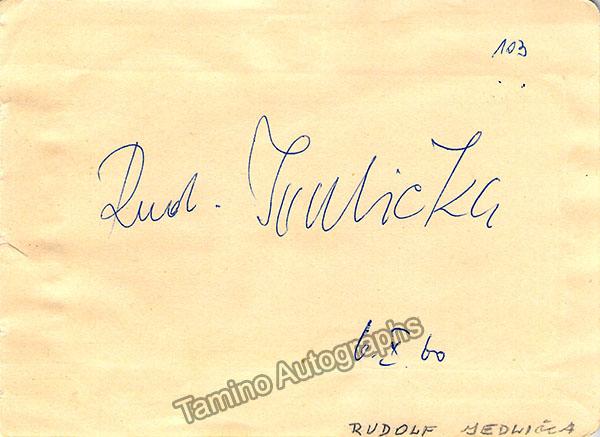 103
Rud. Jedlička
6. X. 60
Tamino Autographs
RUDOLF JEDLIČKA